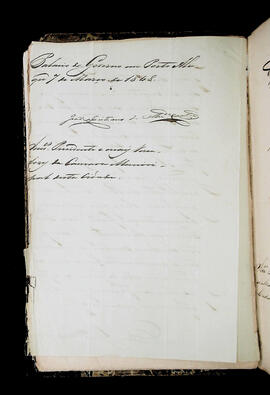 Palacio do Governo em Porto Ale-
gre 7 de Março de 1848.
Snr.s Presidente e mais Vere-
dores da Camara Munici-
pal desta Cidade.